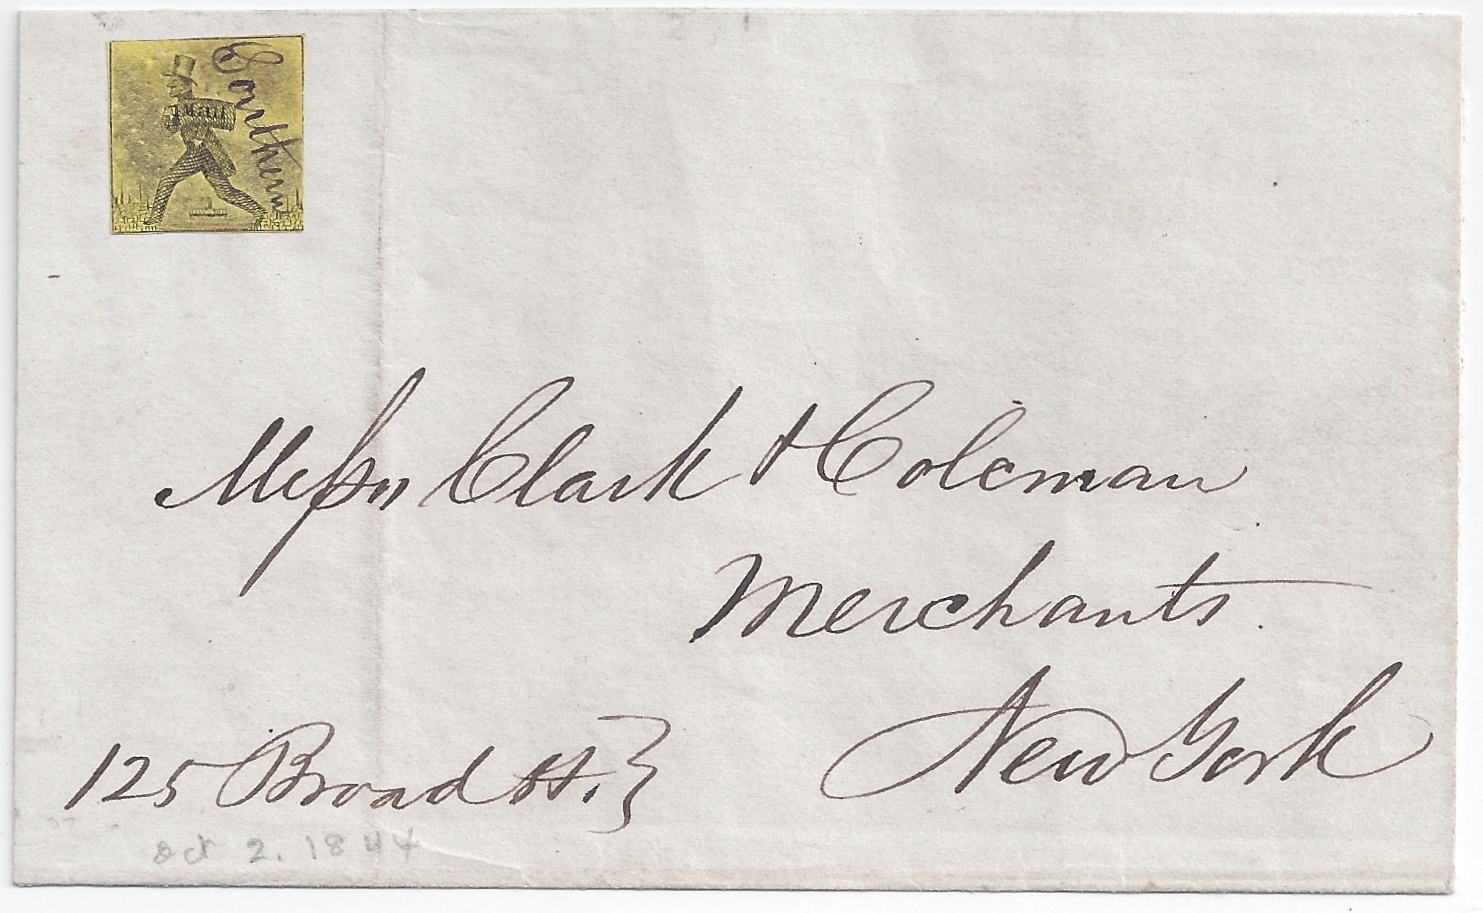 Southern
Mail
Messrs Clark & Coleman
Merchants.
New York
125 Broad St. }
Oct 2. 1844